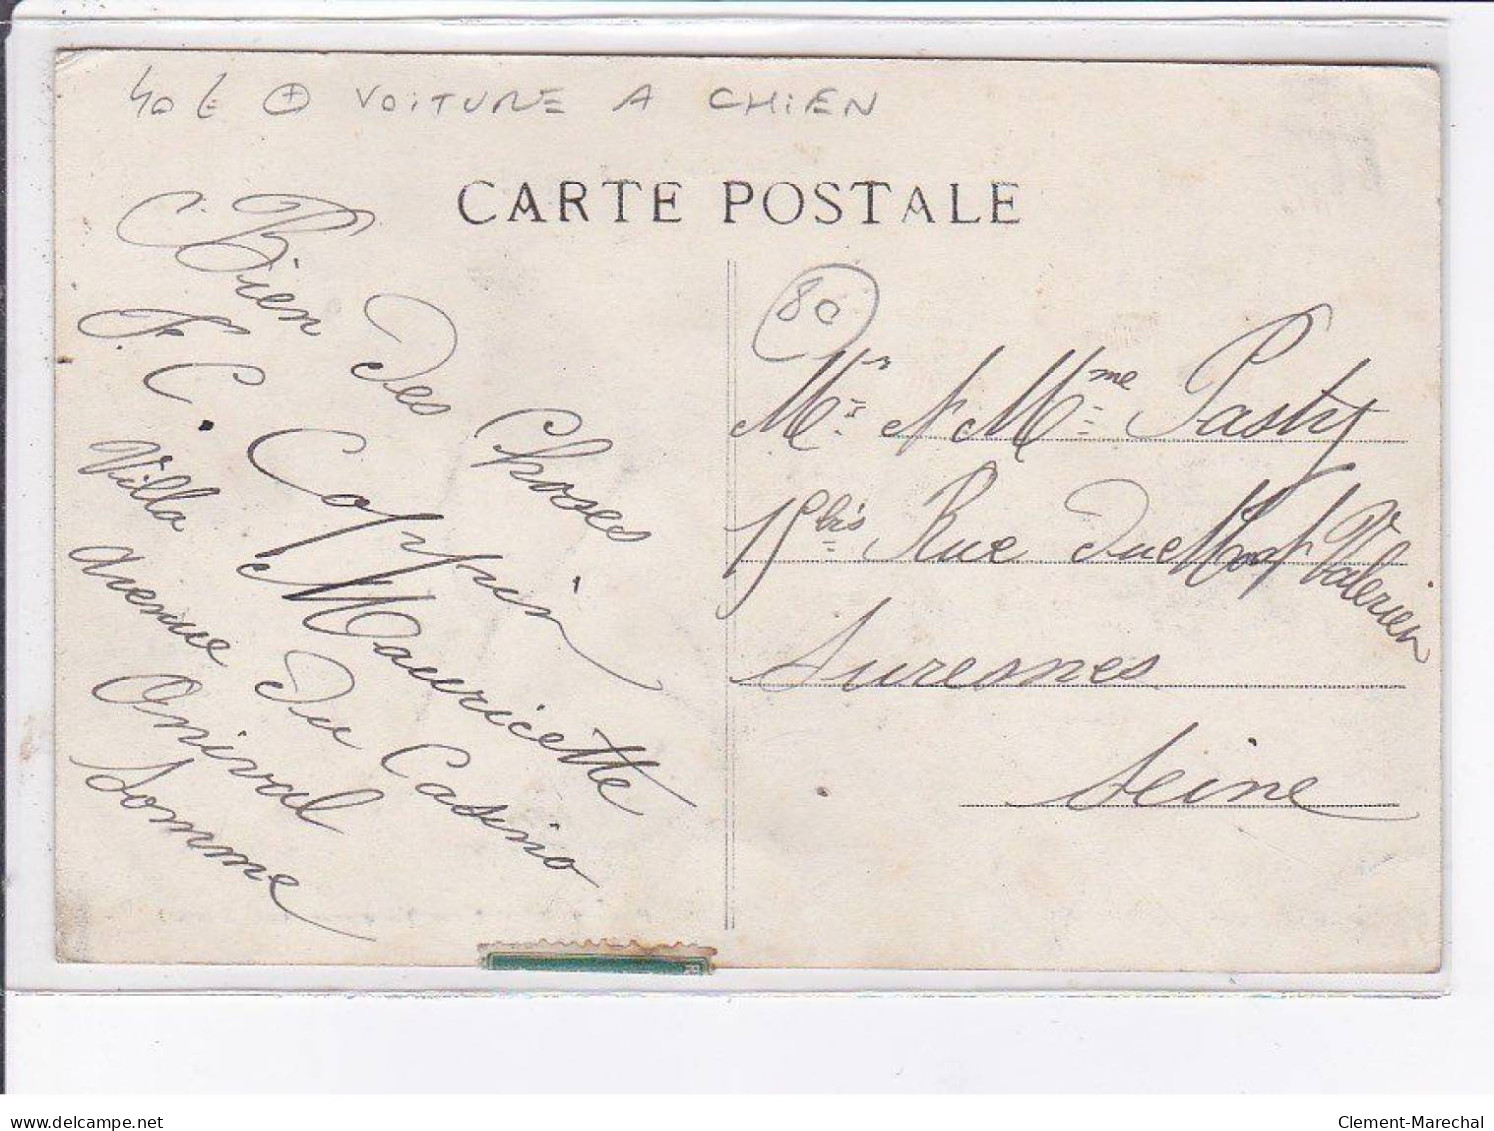 40 € + VOITURE A CHIEN
CARTE POSTALE
Bien des Choses
F. C. Coppin
Villa Mauricette
avenue du Casino
Onival
Somme
80
Mr et Mme Pasty
15bis Rue du Mont Valérien
Suresnes
Seine
delcampe.net
Clement-Marechal